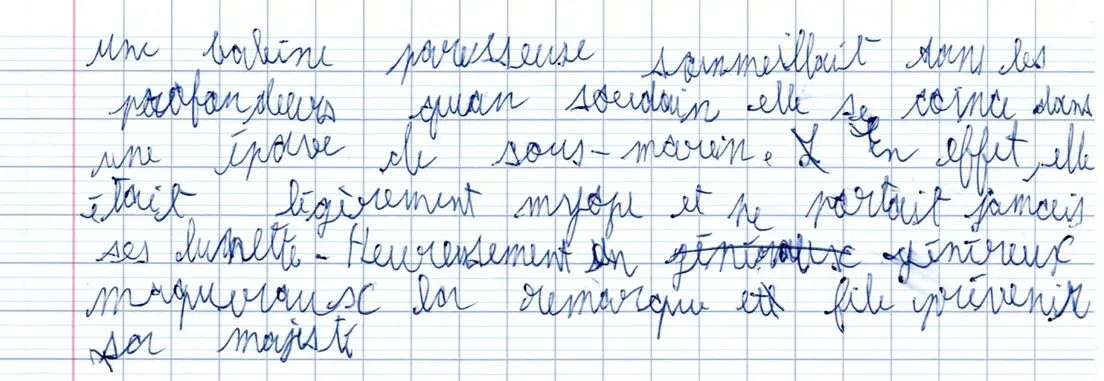 une baleine paresseuse sommeillait dans les
profondeurs quan soudain elle se coince dans
une épave de sous-marin. En effet, elle
était légèrement myope et ne portait jamais
ses lunette. Heureusement un généreux
maqueraux la remarque et file prévenir
sa majesté